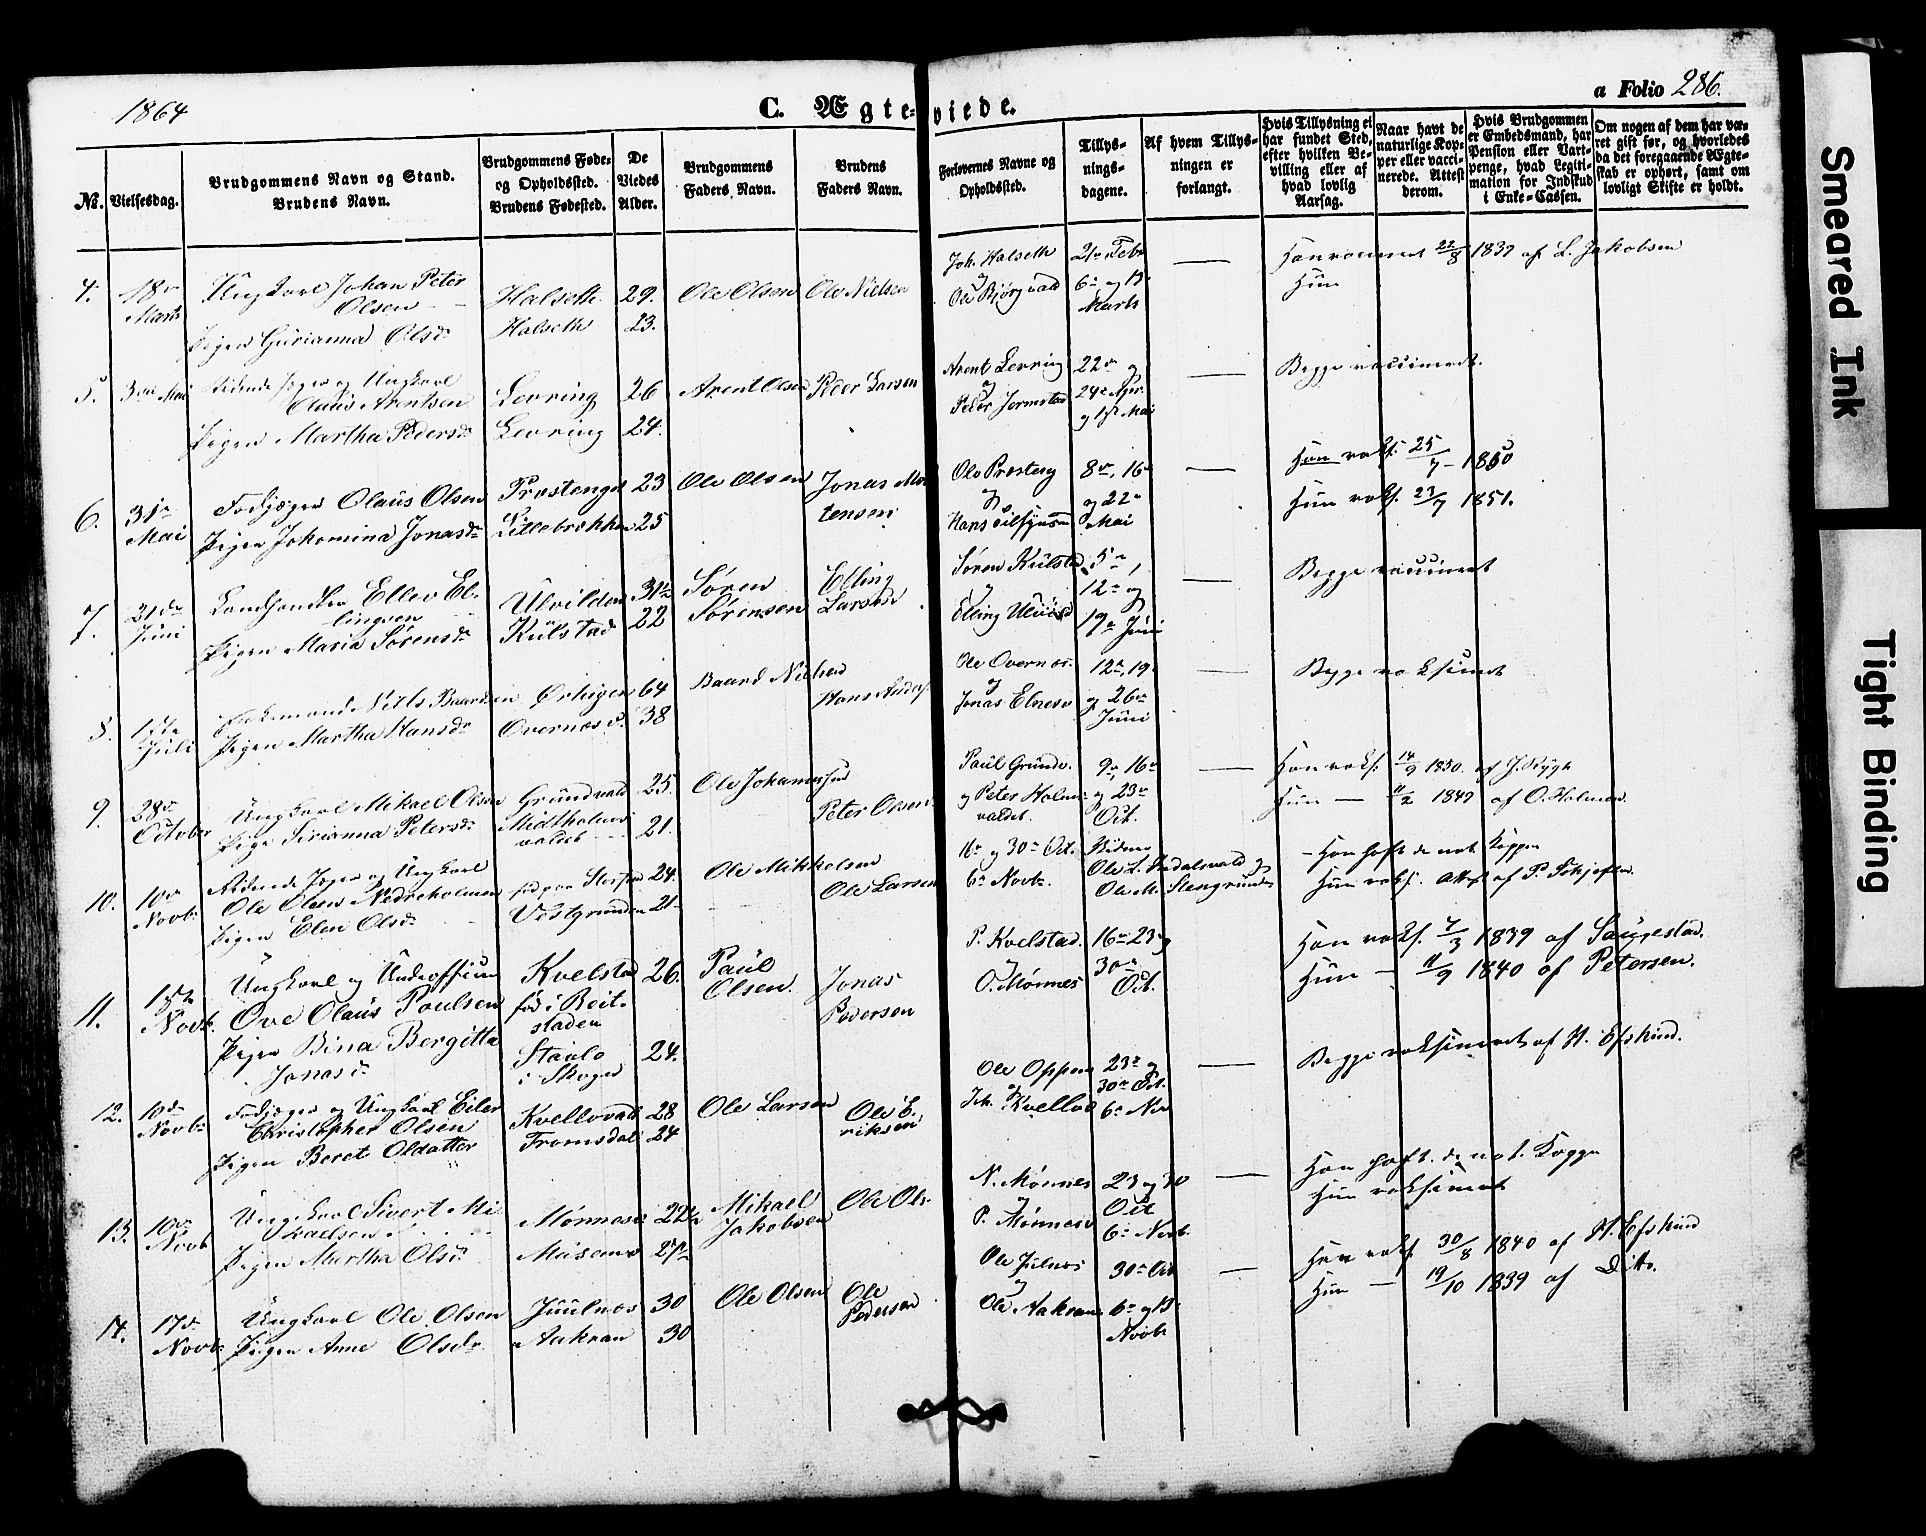 1864
C. Ægteviede.
a Folio 286.
No.
Vielsesdag.
Brudgommens Navn og Stand.
Brudens Navn.
Brudgommens Føde-
og Opholdssted.
Brudens Fødested.
De
Viedes
Alder.
Brudgommens
Faders Navn.
Brudens
Faders Navn.
Forlovernes Navne og
Opholdssted.
Tillys-
nings-
dagene.
Af hvem Tillys-
ningen er
forlangt.
Hvis Tillysning ei
har fundet Sted,
efter hvilken Be-
villing eller af
hvad lovlig
Aarsag.
Naar havt de
naturlige Kop-
per eller vacci-
nerede. Attest
derom.
Hvis Brudgommen
er Embedsmand, har
Pension eller Vart-
penge, hvad Legiti-
mation for Indskud
i Enke-Cassen.
Om nogen af dem har væ-
ret gift før, og hvorledes
da det foregaaende Ægte-
skab er ophørt, samt om
lovligt Skifte er holdt.
4. 18de Marts
Ungkarl Johan Peter
Olsen
Pigen Gurianna Olsd.
Halseth 29.
Halseth 23.
Ole Olsen
Ole Nielsen
Joh. Halseth
og
Ole Bjørgvald
21de Feb.
6te og 13.
Marts
Han vaccineret 22/8 1839 af L. Jakobsen
Hun
5. 3die Mai
Ridende Jæger og Ungkarl
Olaus Arentsen
Pigen Martha Pedersd.
Levring 26
Levring 24.
Arent Olsen
Peder Larsen
Arent Levring
og
Peder Jermstad
22de og
24de Apr.
og 1ste Mai
Begge vaccineret.
6. 31te Mai
Fodjæger Olaus Olsen
Pigen Jokomina Jonasd.
Præstenget 23
Lillebrækken 25
Ole Olsen
Jonas Mor
tensen
Ole Præsteng
og
Hans
8de, 16de
og 22de
Mai
Han vaks. 25/7 - 1850
Hun vaks. 23/7 1851.
7. 21de Juni
Landhandler Ellev El-
lingsen
Pigen Maria Sørensd.
Ulvilden 31
Kulstad 22
Søren
Sørensen
Elling
Larsen
Søren Kulstad
og
Elling Ulvild
5te,
12te og
19de Juni
Begge vaccineret
8. 1ste Juli
Enkemand Nills Baardsen
Pigen Martha Hansd.
Ørtugen 64
Overnæs 38
Baard Nielsen
Hans Anders
Ole Overnæs
og
Jonas Elnesv
12te, 19.
og 26de
Juni
Begge vaksineret
9. 28de October
Ungkarl Mikael Olsen
Pige Sirianna Petersd.
Grundvald 25.
Midtholms-
valdet 21.
Ole Johannesen
Peter Olsen
Paul Grundv.
og Peter Holms-
valdet.
9de, 16de
og 23de
Oct.
Han vaks. 14/9 1850. af J. Nygk
Hun — 11/2 1849 af O. Holman.
10. 10de Novbr.
Ridende Jæger og Ungkarl
Ole Olsen Nedreholmen
Pigen Elen Olsd.
24.
Vestgrunden 21
Ole Mikkelsen
Ole Larsen
16de og 30te Oct.
6te Novbr.
Ole M. Stengrunds
Han haft de nat. Kopper
Hun vaks. Att. af P. Schjefte
11. 1ste Novb.
Ungkarl og Underofficeer
Ove Olaus Paulsen
Pigen Bina Bergitta
Jonasd.
Kvelstad 26.
fød i Beit-
staden
Stavlo
i Skogn 24.
Paul
Olsen.
Jonas
Pedersen
P. Kvelstad.
og
O. Mønnes
16de 23de og
30te
Oct.
Han vaks. 7/3 1839 af Saugestad.
Hun — 11/9 1840 af Petersen.
12. 10de Novbr.
Fodjæger og Ungkarl Eiler
Christopher Olsen
Pigen Beret Oldatter
Kvellovald 28
Tromsdal 24
Ole Larsen
Ole E.
riksen
Ole Oppem
og
Joh. Kvellov
23de og
30te Oct.
6te Nov
Begge vaksineret af H. Efskind.
13. 10de Novb
Ungkarl Sivert Mi-
kaelsen
Pigen Martha Olsd.
Mønnes 22
Musem 27
Mikael
Jakobsen
Ole Ols.
N. Mønnes
og
P. Mønnes
23 og 30
Oct
6te Novb.
Han haft. de nat. Kopper
Hun vaksineret
14. 17de Novbr.
Ungkarl Ole Olsen
Pigen Anne Olsdr
Juulnæs 30
Aakran 30
Ole Olsen
Ole
Pedersen
Ole Julnæs
og
Ole Aakran
30te Oct
6te og 13.
Novbr
Han vaks. 30/8 1840 af H. Efskind
Hun — 19/10 1839 af Ditto.
Smeared Ink
Tight Binding